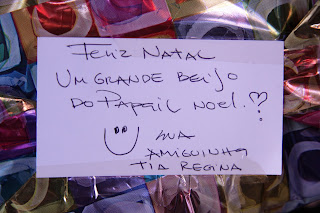 FELIZ NATAL
UM GRANDE BEIJO
DO PAPAIL NOEL.?
SUA
AMIGUINHA
TIA REGINA